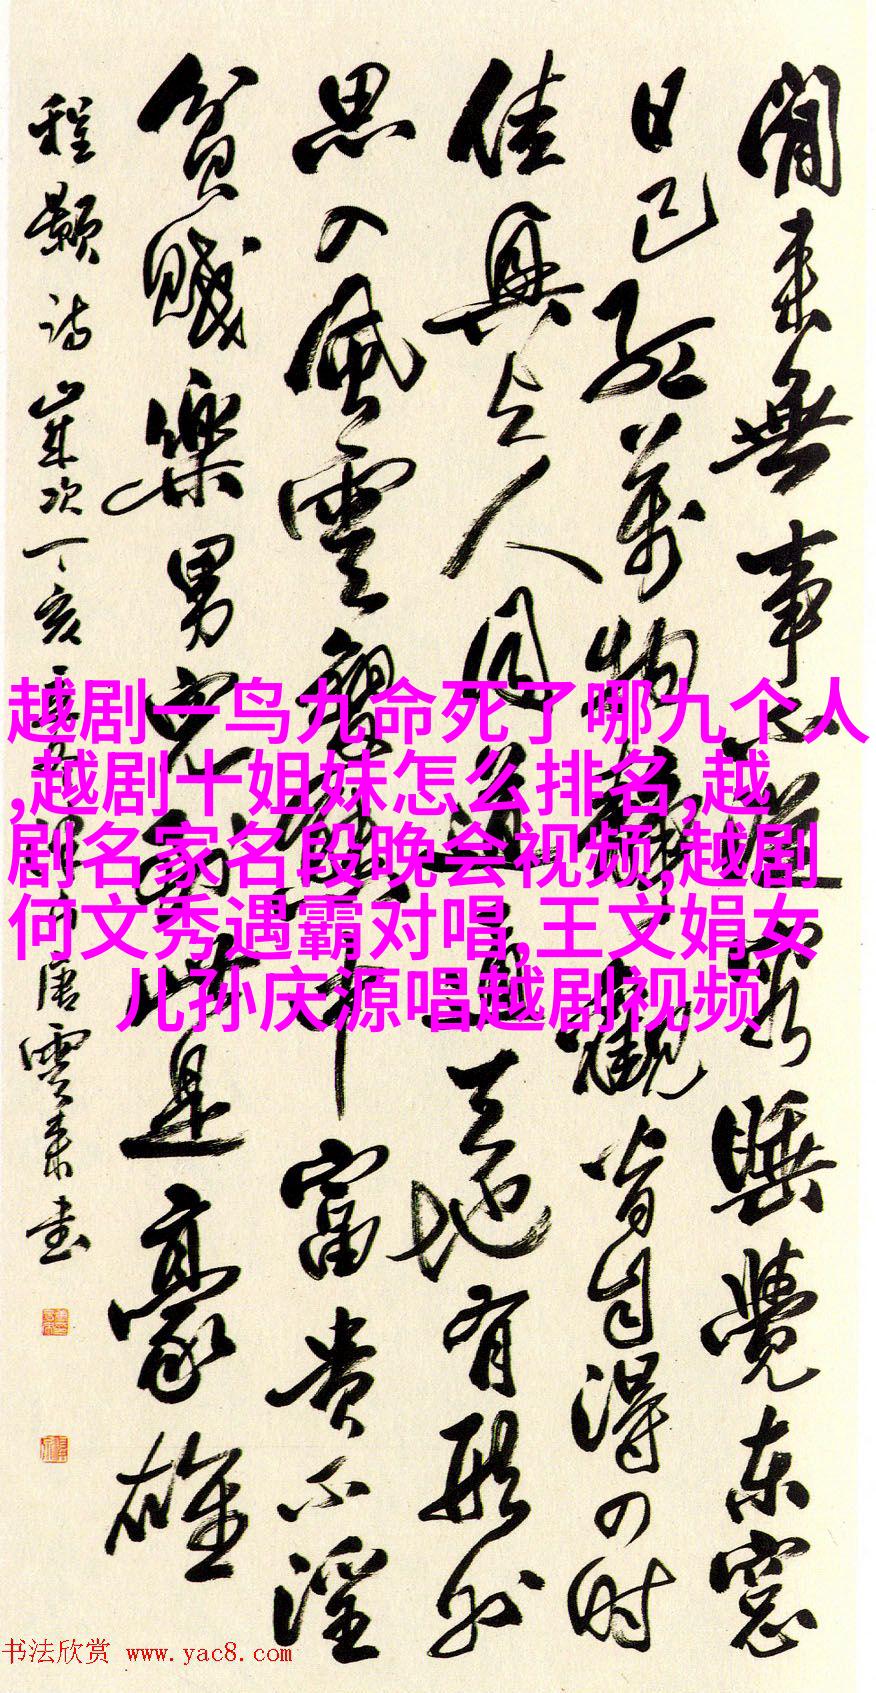 閒来無事不從容睡覺东窓
日已红萬物静觀皆自得四时
佳興与人同道通天地有形外
思入風雲變態中富貴不淫
貧賤樂男兒到此是豪雄
程颢诗歲次丁亥唐雲来书
越剧一鸟九命死了哪九个人
,越剧十姐妹怎么排名,越
剧名家名段晚会视频,越剧
何文秀遇霸对唱,王文娟女
儿孙庆源唱越剧视频
书法欣赏 www.yac8.com